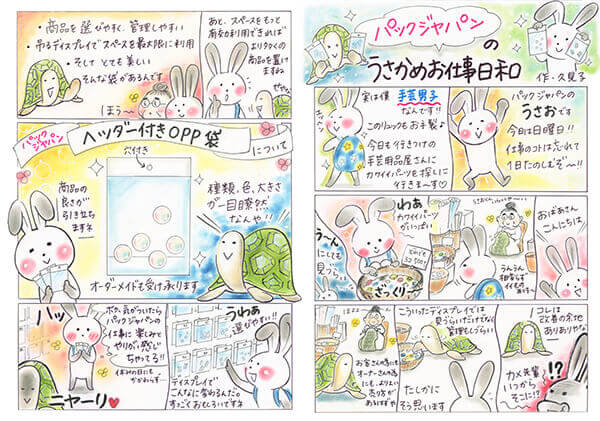 パックジャパン
の
うさかめお仕事日和
作・久見子
パックジャパンの
うさおです
今日は日曜日!!
仕事のコトは忘れて
1日たのしむぞ〜!!
実は僕
手芸男子
なんです!!
このリュックもお手製♪
今日も行きつけの
手芸用品屋さんに
カワイイパーツを探しに
行きまーす♡
おばあさん
こんにちは
わぁ
カワイイパーツ
がいっぱい
う〜ん
にしても
見づらい
ざっくり
コレは
改善の余地
ありありやな
カメ先輩
いつから
そこに!?
こういったディスプレイでは
見づらいだけでなく
管理もしづらい
お客さんの為にも
オーナーさんの為
にも、よりよい
売り方が
あるはずや
たしかに
そう思います
・商品を選びやすく、管理しやすい
・吊るディスプレイでスペースを最大限に利用
・そしてとても美しい
そんな袋があるんです
ほう〜
あと、スペースをもっと
有効利用できれば
よりタクサンの
商品を置け
ますね
パックジャパン
ヘッダー付きOPP袋
について
穴付き
商品の
良さが
引き立ち
ますネ
種類、色、大きさ
が一目瞭然
なんや!!
オーダーメイドも受け承ります
うわぁ
選びやすい!!
ディスプレイで
こんなに変わるんだ。
すっごくおもしろいですネ
ハッ
ボク、気がついたら
パックジャパンの
仕事に楽しみと
やりがい感じ
ちゃってる!!
休みの日にも
かかわらず
ニヤーリ♥